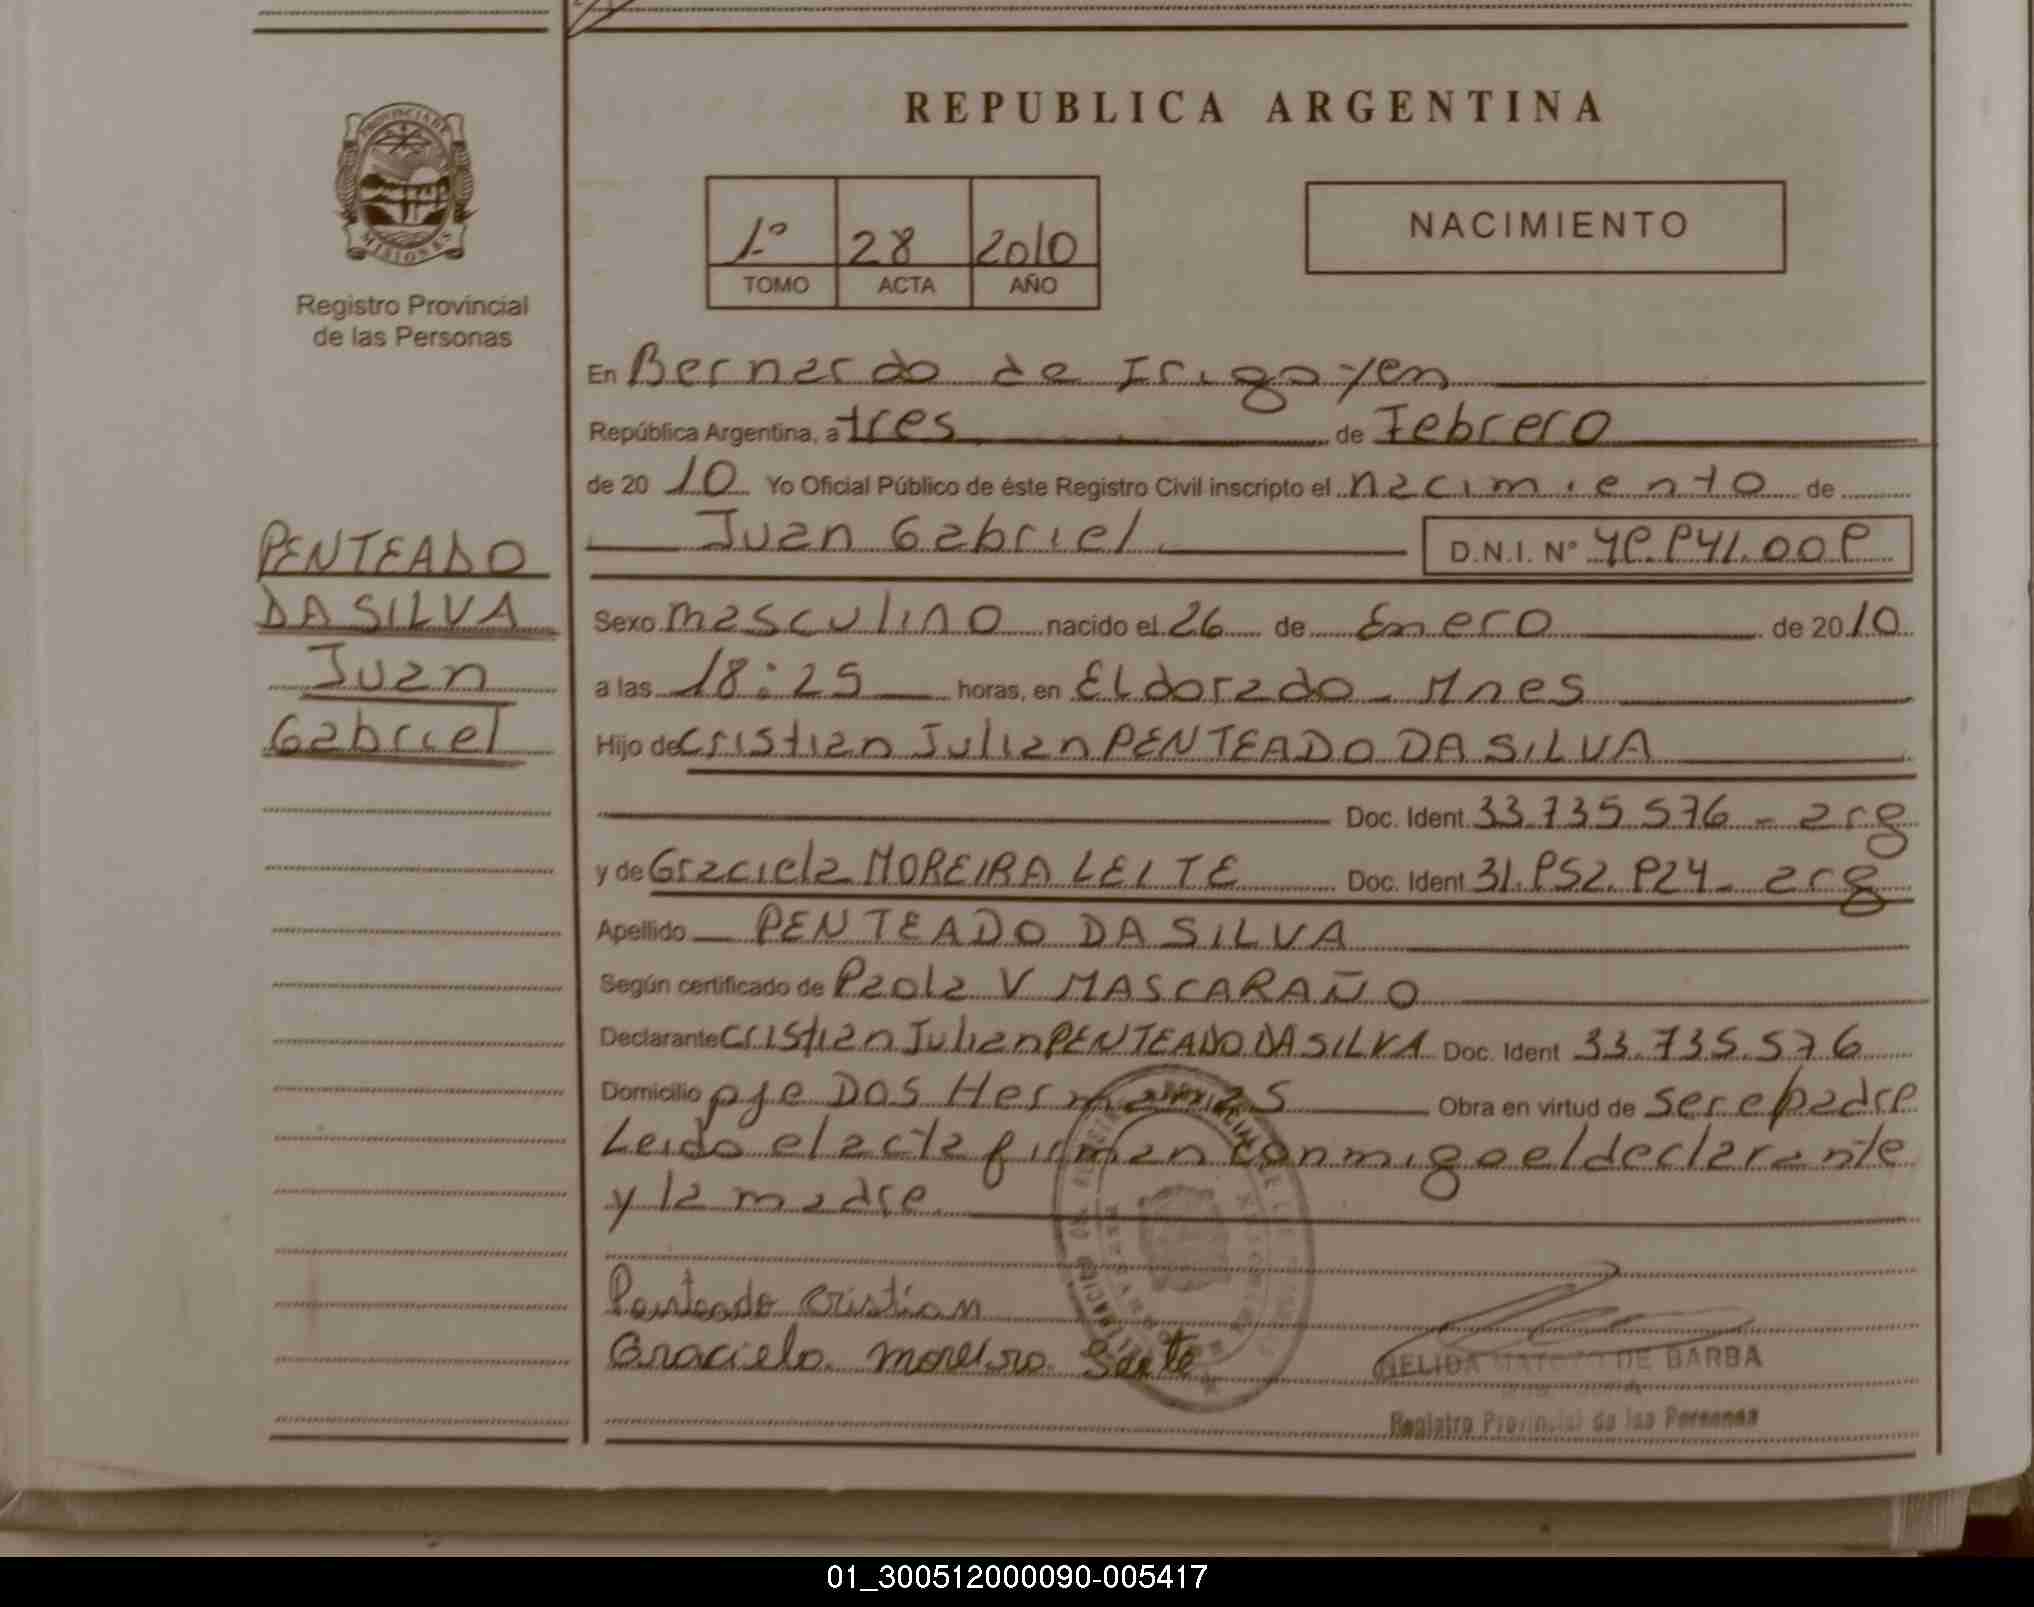 REPUBLICA ARGENTINA
Registro Provincial
de las Personas
1º 28 2010
TOMO ACTA AÑO
NACIMIENTO
PENTEADO
DA SILVA
Juan
Gabriel
En Bernardo de Irigoyen
República Argentina, a tres de Febrero
de 20 10 Yo Oficial Público de éste Registro Civil inscripto el nacimiento de
Juan Gabriel D.N.I. Nº 49.941.009
Sexo masculino nacido el 26 de Enero de 2010
a las 18:25 horas, en Eldorado - Mnes
Hijo de Cristian Julian PENTEADO DA SILVA
Doc. Ident. 33.735.576 - arg
y de Graciela MOREIRA LEITE Doc. Ident. 31.952.924 - arg
Apellido PENTEADO DA SILVA
Según certificado de Paola V MASCARAÑO
Declarante Cristian Julian PENTEADO DA SILVA Doc. Ident 33.735.576
Domicilio pje Dos Hermanas Obra en virtud de ser el padre
Leido el acta firman conmigo el declarante
y la madre
Penteado Cristian
Graciela moreira Leite
NELIDA DE BARBA
Registro Provincial de las Personas
01_300512000090-005417